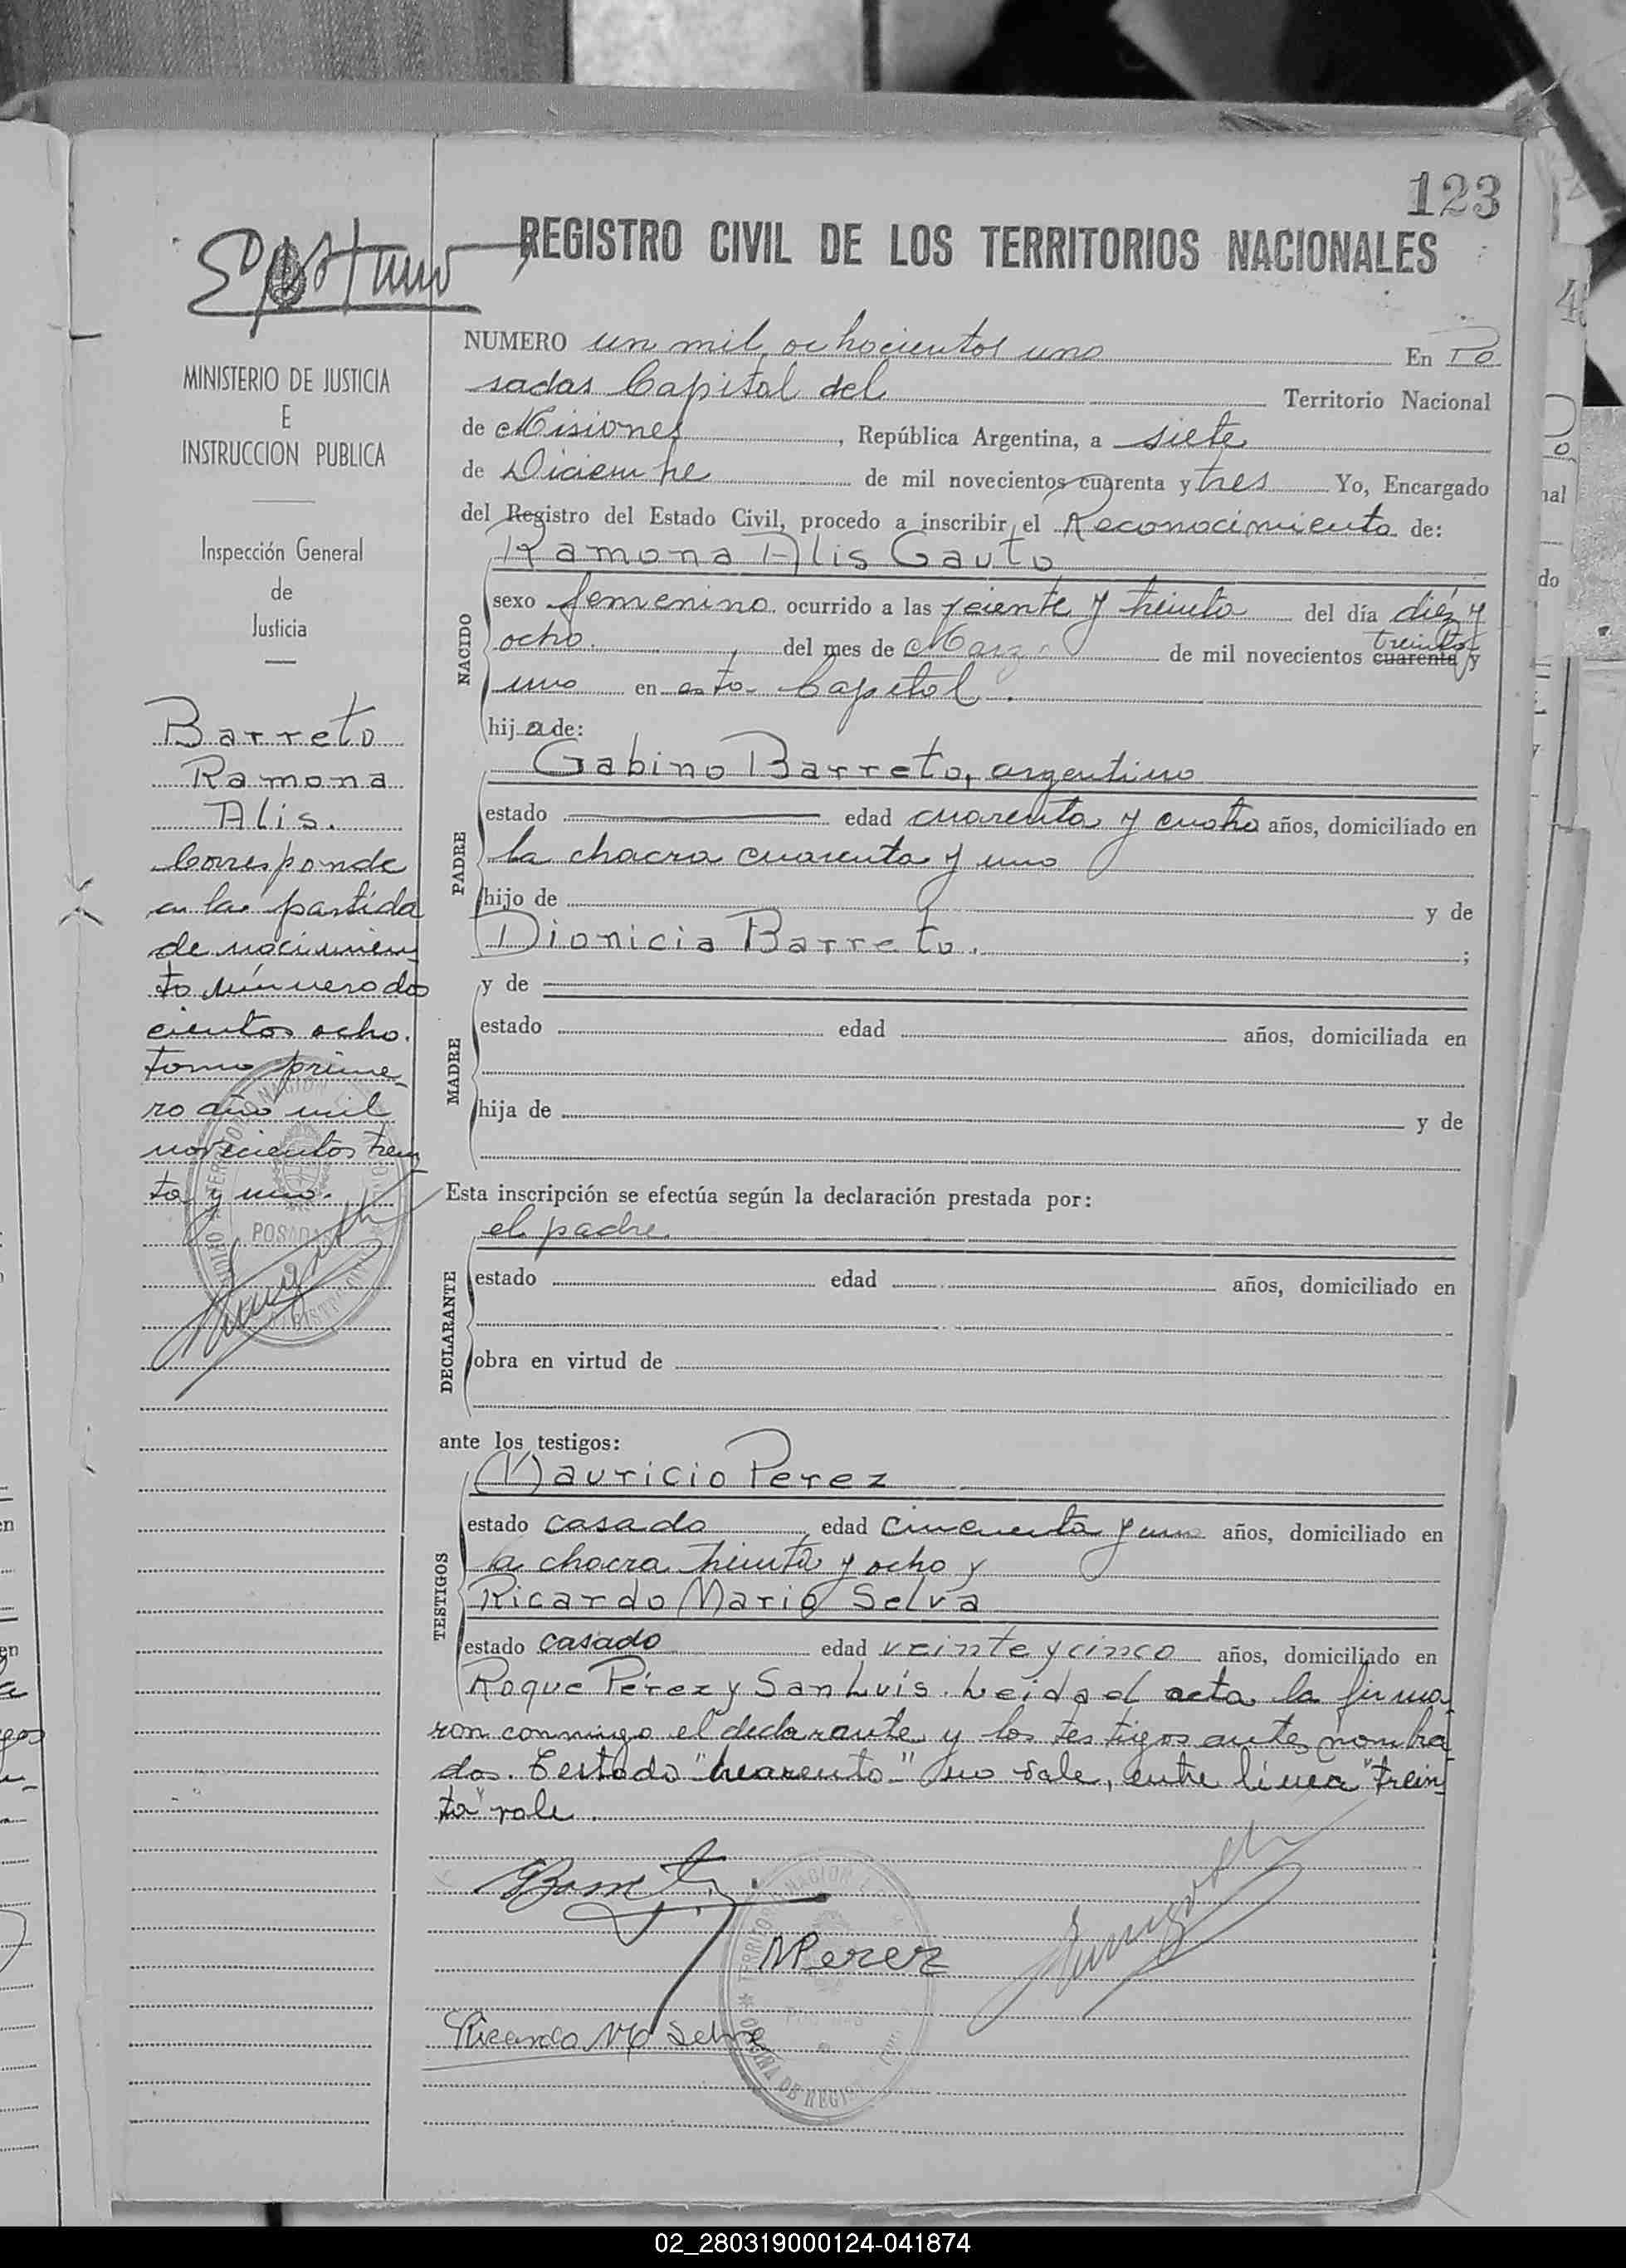 123
REGISTRO CIVIL DE LOS TERRITORIOS NACIONALES
MINISTERIO DE JUSTICIA
E
INSTRUCCION PUBLICA
Inspección General
de
Justicia
Barreto
Ramona
Alis.
Corresponde
a la partida
de nacimien-
to número dos
cientos ocho.
tomo prime-
ro año mil
novecientos trein
ta y uno.
NUMERO un mil ochocientos uno En Po
sadas Capital del Territorio Nacional
de Misiones, República Argentina, a siete
de Diciembre de mil novecientos cuarenta y tres Yo, Encargado
del Registro del Estado Civil, procedo a inscribir el Reconocimiento de:
Ramona Alis Gauto
NACIDO
sexo femenino ocurrido a las y treinta del día diéz y
ocho. del mes de Marzo de mil novecientos cuarenta treinta y
uno en esta Capital.
hija de:
PADRE
Gabino Barreto, argentino
estado edad cuarenta y cuatro años, domiciliado en
la chacra cuarenta y uno
hijo de y de
Dionicia Barreto. ;
MADRE
y de
estado edad años, domiciliada en
hija de y de
Esta inscripción se efectúa según la declaración prestada por:
el padre
DECLARANTE
estado edad años, domiciliado en
obra en virtud de
ante los testigos:
TESTIGOS
Mauricio Perez
estado casado edad cincuenta y uno años, domiciliado en
la chacra treinta y ocho y
Ricardo Mario Selva
estado casado edad veinte y cinco años, domiciliado en
Roque Pérez y San Luis. Leida el acta la firma
ron conmigo el declarante y los testigos antes nombra
dos. Testado "cuarenta" no vale, entre linea "trein
ta" vale.
MPerez
Ricardo Mo Selva
POSADAS
02_280319000124-041874